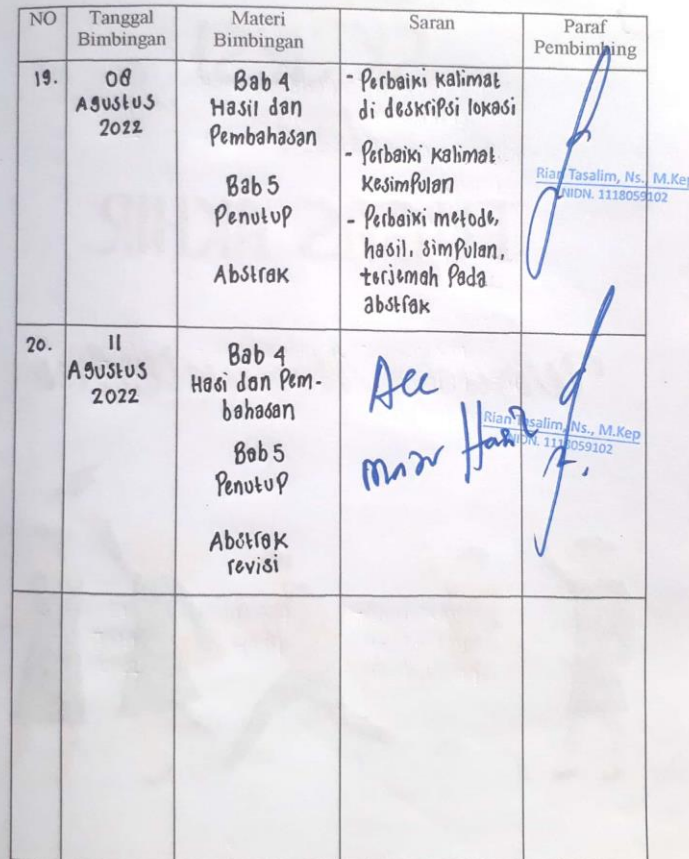 NO
Tanggal
Bimbingan
Materi
Bimbingan
Saran
Paraf
Pembimbing
19.
08
Agustus
2022
Bab 4
Hasil dan
Pembahasan
Bab 5
Penutup
Abstrak
- Perbaiki kalimat
di deskripsi lokasi
- Perbaiki kalimat
kesimpulan
- Perbaiki metode,
hasil, simpulan,
terjemah pada
abstrak
Rian Tasalim, Ns., M.Kep
NIDN. 1118059102
20.
11
Agustus
2022
Bab 4
Hasi dan Pem-
bahasan
Bab 5
Penutup
Abstrak
revisi
Acc
Rian Tasalim, Ns., M.Kep
NIDN. 1118059102